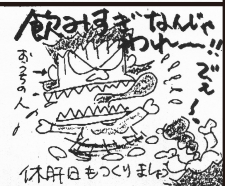 飲みすぎなんじゃ
われ〜!!
おうちの人
でえ〜
休肝日もつくりましょう